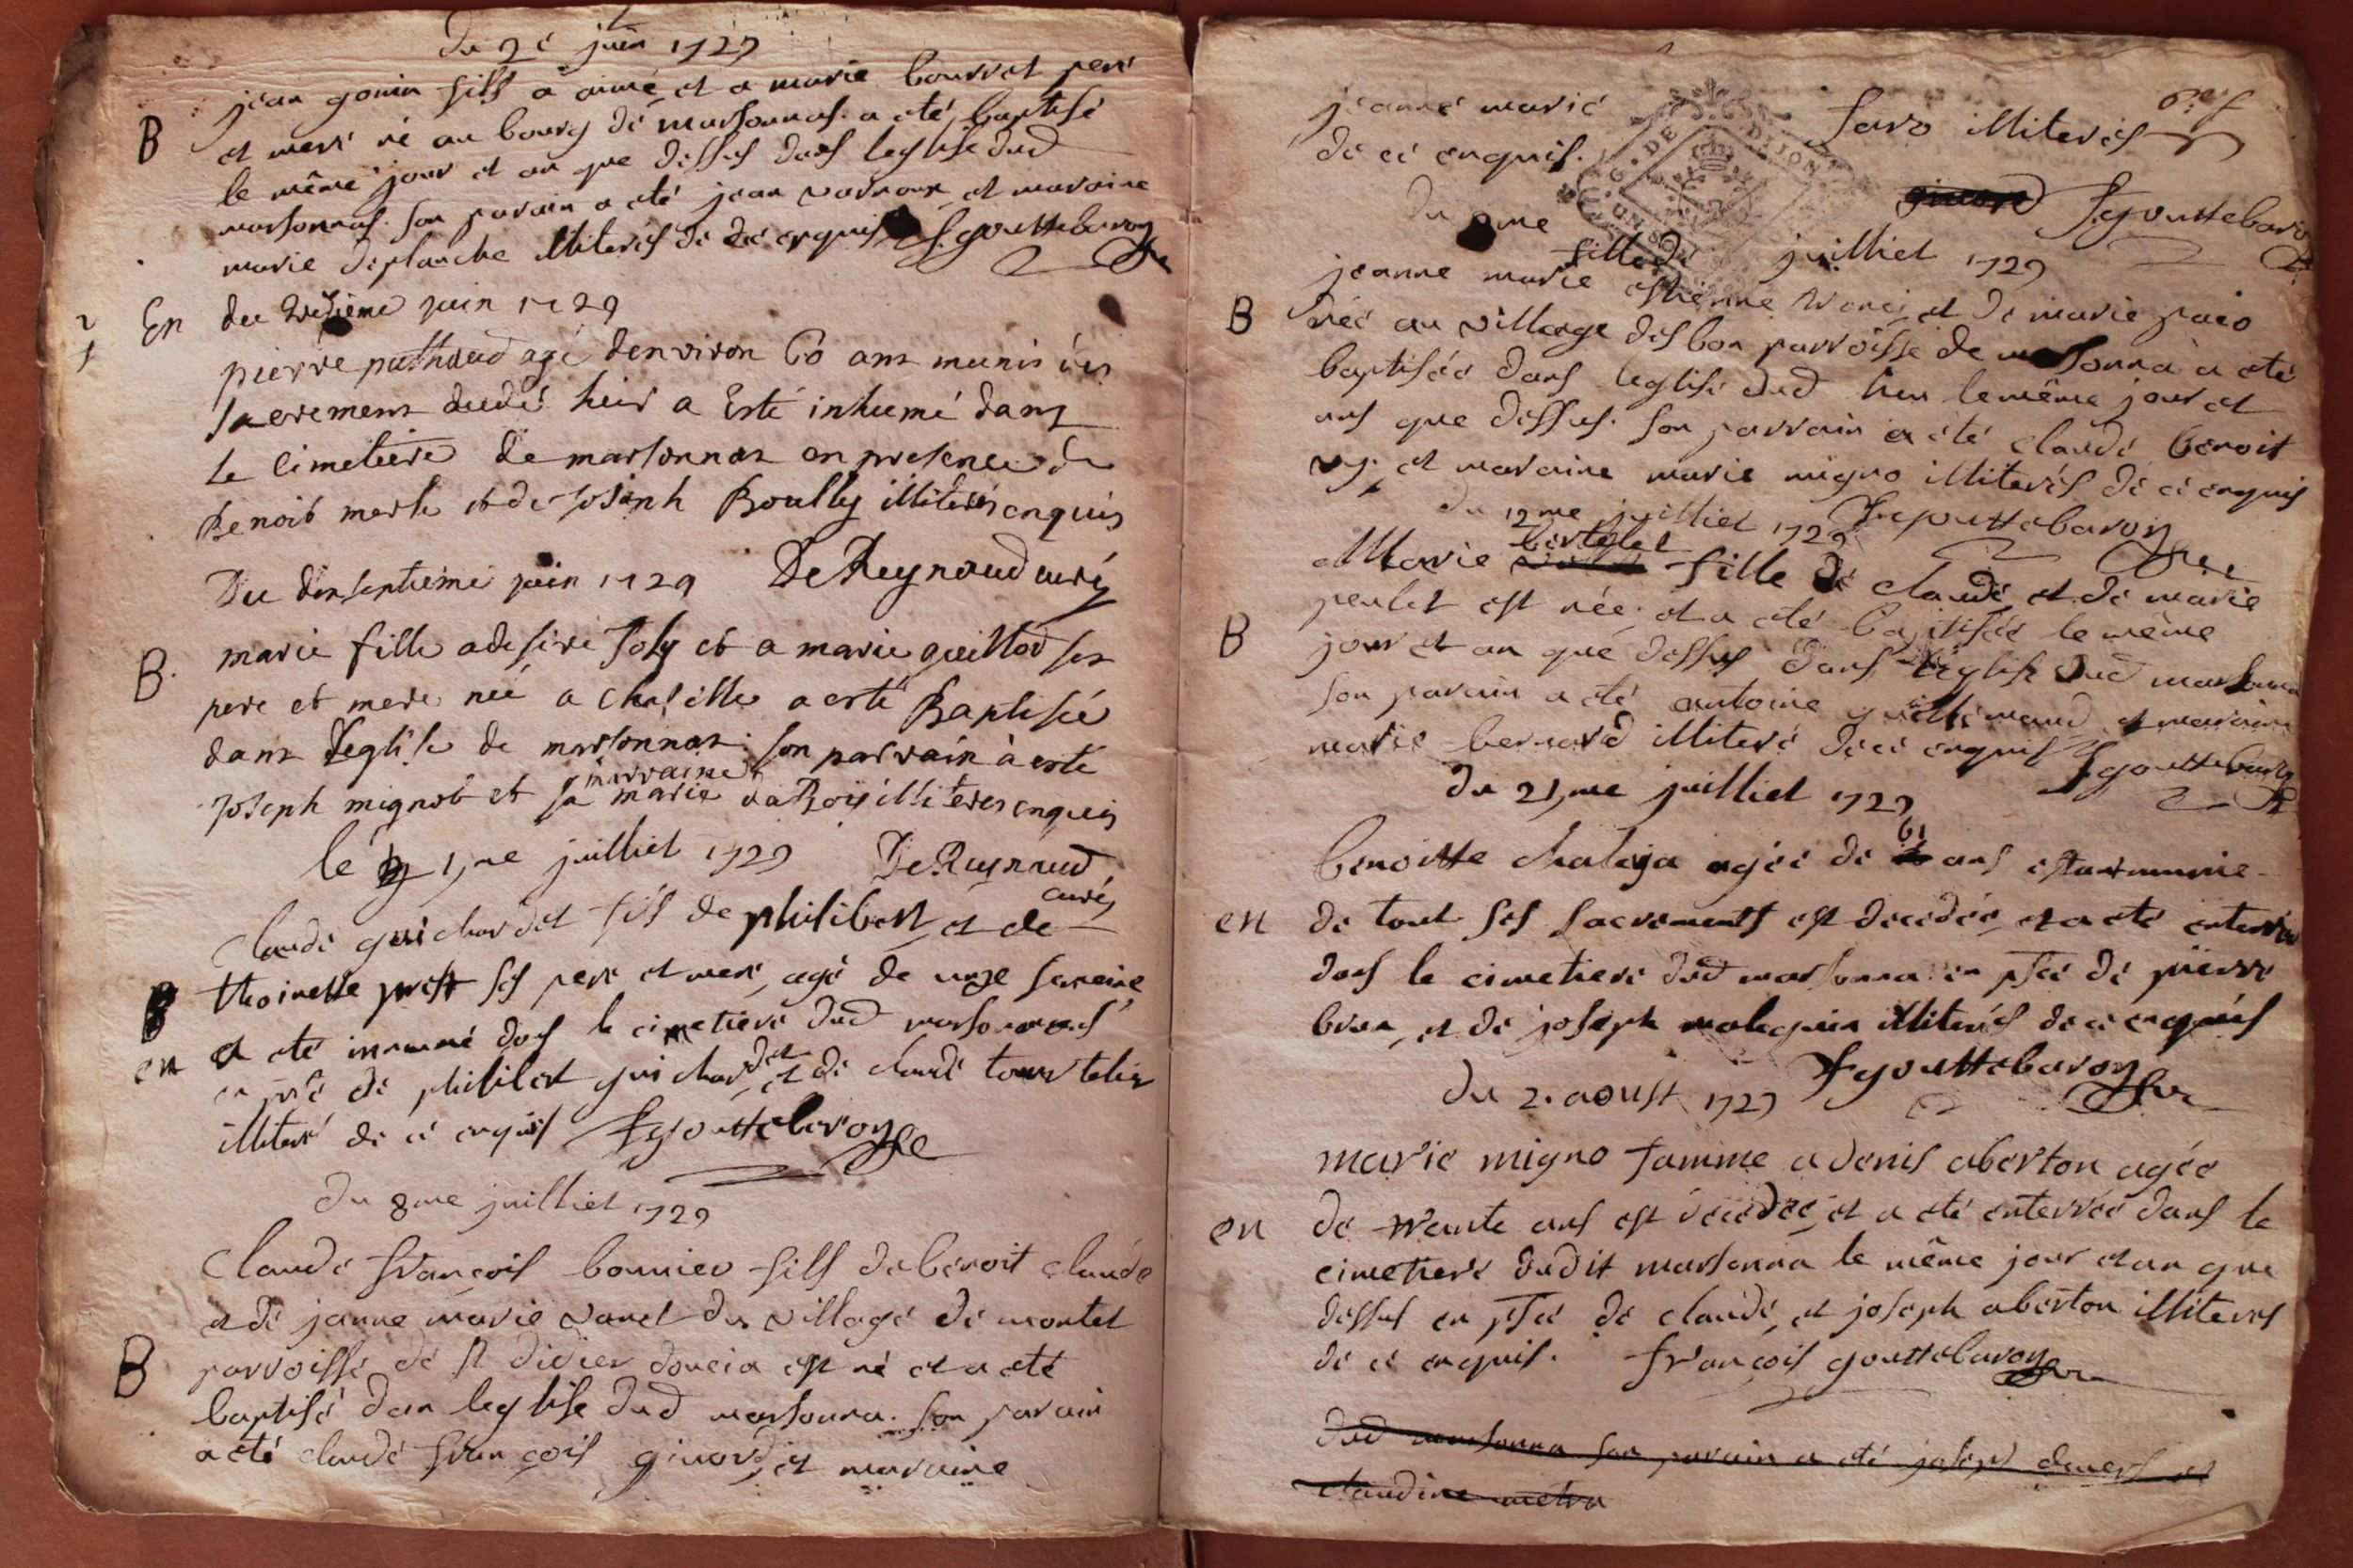 du 9e juin 1729
B jean gonin fils a aimé et a marie bourret pere
et mere né au bourg de marsonnas a eté baptisé
le même jour et an que dessus dans leglise dud
marsonnas. son parain a eté jean varnoux et maraine
marie deplanche illiterés de ce enquis f. gouttebaron
En du treisieme juin 1729
pierre puthoud agé denviron 60 ans munis des
sacremens dudé heir a Esté inhumé dans
le cimetiere de marsonnas en presence de
Benoit merle et de Joseph Boully illiterés enquis
Du dixseptieme juin 1729 DeReynaud curé
B. marie fille a desiré Joly et a marie guillod ses
pere et mere née a chasille a esté Baptisée
dans l'eglise de marsonnas. son parrain à esté
Joseph mignot et sa marraine marie illiteres enquis
le 1,me juilliet 1729 DeReynaud
curé
claude guichardet fils de philibert et de
B thoinette prost ses pere et mere, agé de unze semeine
en a eté innumé dans le cimetiere dud marsonnas
en pñce de philibert guichardet et de claude tourtelier
illiteré de ce enquis f gouttebaron
Du 8me juilliet 1729
Claude françois bonnier fils de benoit claude
et de janne marie varel du village de montet
B parroisse de st didier doucia est né et a eté
baptisé dan leglise dud marsonna. son parain
a eté claude françois ginord, et maraine
jeanne marie favro illiterés
de ce enquis.
ginord f gouttebaron
Du 9me juilliet 1729
fille de
jeanne marie estienne et de marie paio
B née au village des bon parroisse de marsonna a eté
baptisée dans leglise dud lieu le même jour et
ans que dessus. son parrain a été claude benoit
et maraine marie migno illiterés de ce enquis
du 12me juilliet 1729 f gouttebaron
bertelet
Marie fille de claude et de marie
peulet est née et a eté baptisée le même
B jour et an que dessus dans leglise dud marsonna
son parain a eté antoine guillemaud et maraine
marie bernard illiteré de ce enquis f gouttebaron
Du 21,me juilliet 1729
61
benoitte chaleya agée de ans estant munie
en de tout ses sacrements est decedée, et a eté enterrée
dans le cimetiere dud marsonna en pñce de pierre
brun, et de joseph malequin illiterés de ce enquis
Du 2. aoust 1729 f gouttebaron
marie migno famme a denis aberton agée
en de trante ans est decedée, et a eté enterrée dans le
cimetiere dudit marsonna le même jour et an que
dessus en pñce de claude, et joseph aberton illiterés
de ce enquis. françois gouttebaron
dud marsonna son parain a eté joseph et
claudine